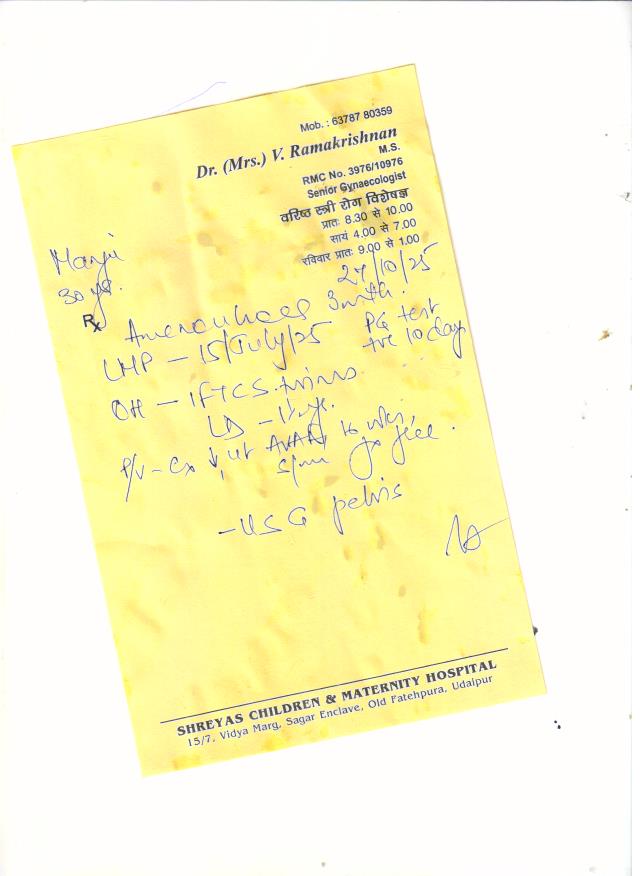 Mob. : 63787 80359
Dr. (Mrs.) V. Ramakrishnan
M.S.
RMC No. 3976/10976
Senior Gynaecologist
वरिष्ठ स्त्री रोग विशेषज्ञ
प्रातः 8.30 से 10.00
सायं 4.00 से 7.00
रविवार प्रातः 9.00 से 1.00
27/10/25
30 yr.
Rx
3 mth.
LMP - 15/July/25 PG test
+ve 10 day
OH - 1FTCS twins
LD - 11 yr.
P/V - Cx ↓, ut AVAF, 16 wks,
fx free.
- USG pelvis
SHREYAS CHILDREN & MATERNITY HOSPITAL
15/7, Vidya Marg, Sagar Enclave, Old Fatehpura, Udaipur